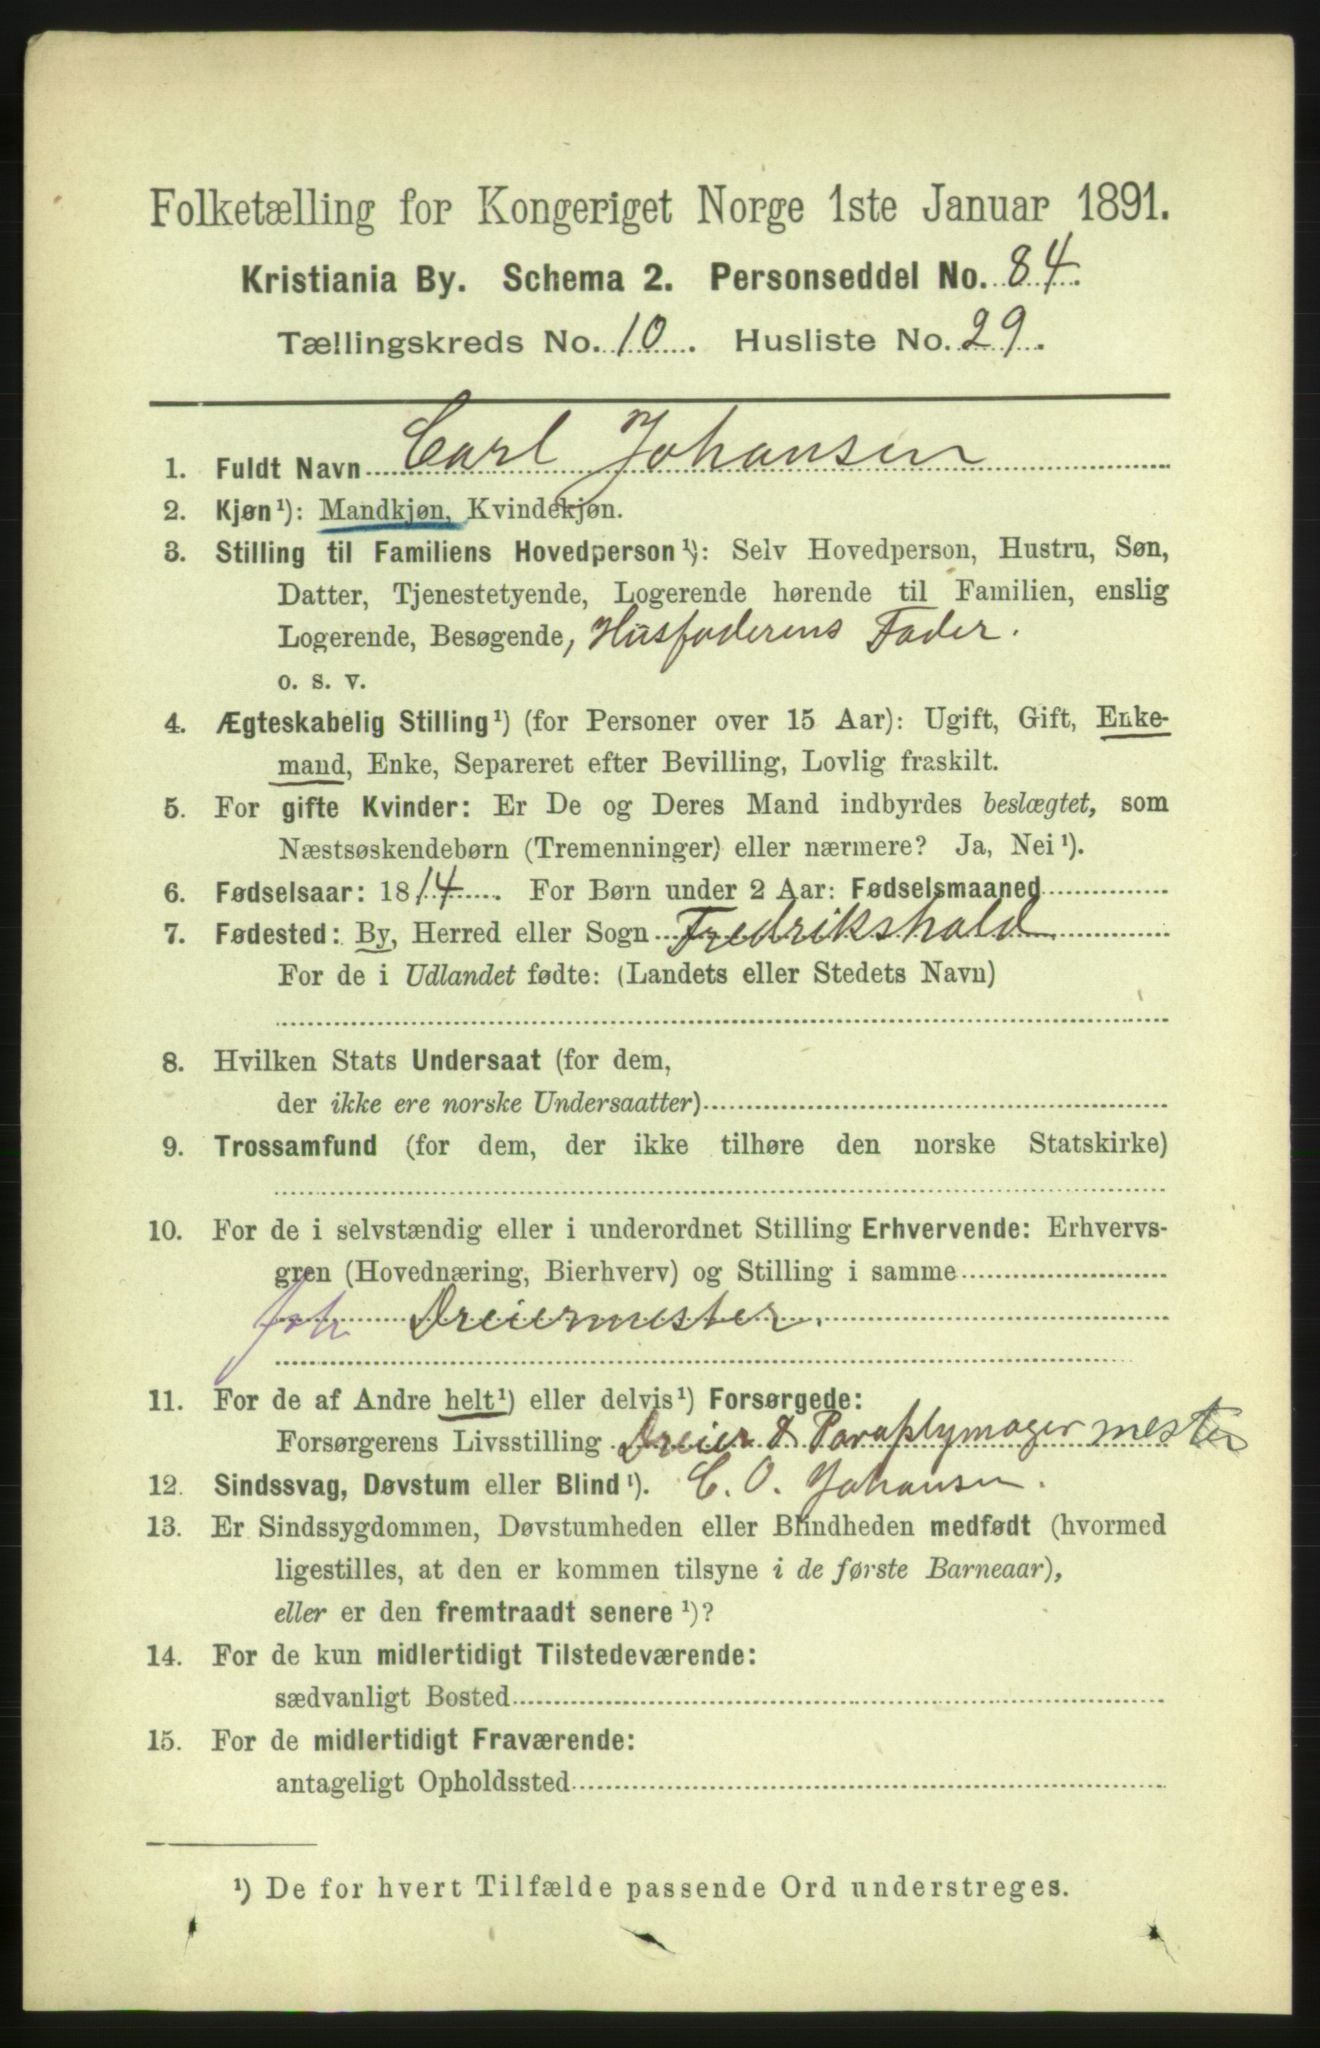 Folketælling for Kongeriget Norge 1ste Januar 1891.
Kristiania By. Schema 2. Personseddel No. 84.
Tællingskreds No. 10. Husliste No. 29.
1. Fuldt Navn Carl Johansen
2. Kjøn¹): Mandkjøn, Kvindekjøn.
3. Stilling til Familiens Hovedperson¹): Selv Hovedperson, Hustru, Søn,
Datter, Tjenestetyende, Logerende hørende til Familien, enslig
Logerende, Besøgende, Husfaderens Fader.
o. s. v.
4. Ægteskabelig Stilling¹) (for Personer over 15 Aar): Ugift, Gift, Enke-
mand, Enke, Separeret efter Bevilling, Lovlig fraskilt.
5. For gifte Kvinder: Er De og Deres Mand indbyrdes beslægtet, som
Næstsøskendebørn (Tremenninger) eller nærmere? Ja, Nei¹).
6. Fødselsaar: 1814. For Børn under 2 Aar: Fødselsmaaned
7. Fødested: By, Herred eller Sogn Fredrikshald
For de i Udlandet fødte: (Landets eller Stedets Navn)
8. Hvilken Stats Undersaat (for dem,
der ikke ere norske Undersaatter)
9. Trossamfund (for dem, der ikke tilhøre den norske Statskirke)
10. For de i selvstændig eller i underordnet Stilling Erhvervende: Erhvervs-
gren (Hovednæring, Bierhverv) og Stilling i samme
Dreiermester.
11. For de af Andre helt¹) eller delvis¹) Forsørgede:
Forsørgerens Livsstilling Dreier & Paraplymager mester
12. Sindssvag, Døvstum eller Blind¹). C. O. Johansen.
13. Er Sindssygdommen, Døvstumheden eller Blindheden medfødt (hvormed
ligestilles, at den er kommen tilsyne i de første Barneaar),
eller er den fremtraadt senere¹)?
14. For de kun midlertidigt Tilstedeværende:
sædvanligt Bosted
15. For de midlertidigt Fraværende:
antageligt Opholdssted
¹) De for hvert Tilfælde passende Ord understreges.